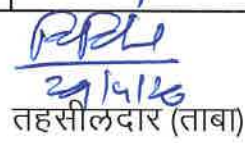 29/4/26
तहसीलदार (ताबा)